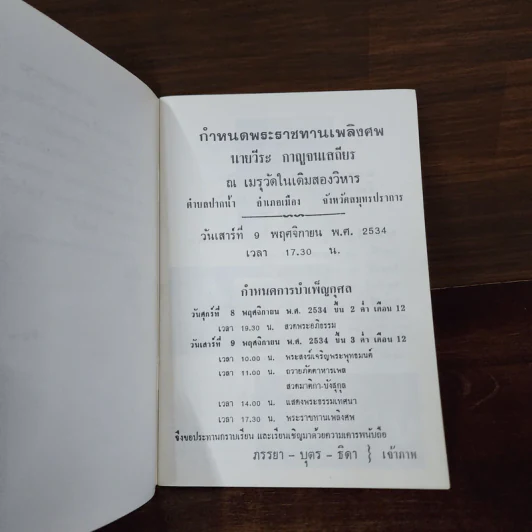 กำหนดพระราชทานเพลิงศพ
นายวีระ กาญจนเสถียร
ณ เมรุวัดในเดิมสองวิหาร
ตำบลปากน้ำ อำเภอเมือง จังหวัดสมุทรปราการ
วันเสาร์ที่ 9 พฤศจิกายน พ.ศ. 2534
เวลา 17.30 น.
กำหนดการบำเพ็ญกุศล
วันศุกร์ที่ 8 พฤศจิกายน พ.ศ. 2534 ขึ้น 2 ค่ำ เดือน 12
เวลา 19.30 น. สวดพระอภิธรรม
วันเสาร์ที่ 9 พฤศจิกายน พ.ศ. 2534 ขึ้น 3 ค่ำ เดือน 12
เวลา 10.00 น. พระสงฆ์เจริญพระพุทธมนต์
เวลา 11.00 น. ถวายภัตตาหารเพล
สวดมาติกา-บังสุกุล
เวลา 14.00 น. แสดงพระธรรมเทศนา
เวลา 17.30 น. พระราชทานเพลิงศพ
จึงขอประทานกราบเรียน และเรียนเชิญมาด้วยความเคารพนับถือ
ภรรยา - บุตร - ธิดา } เจ้าภาพ